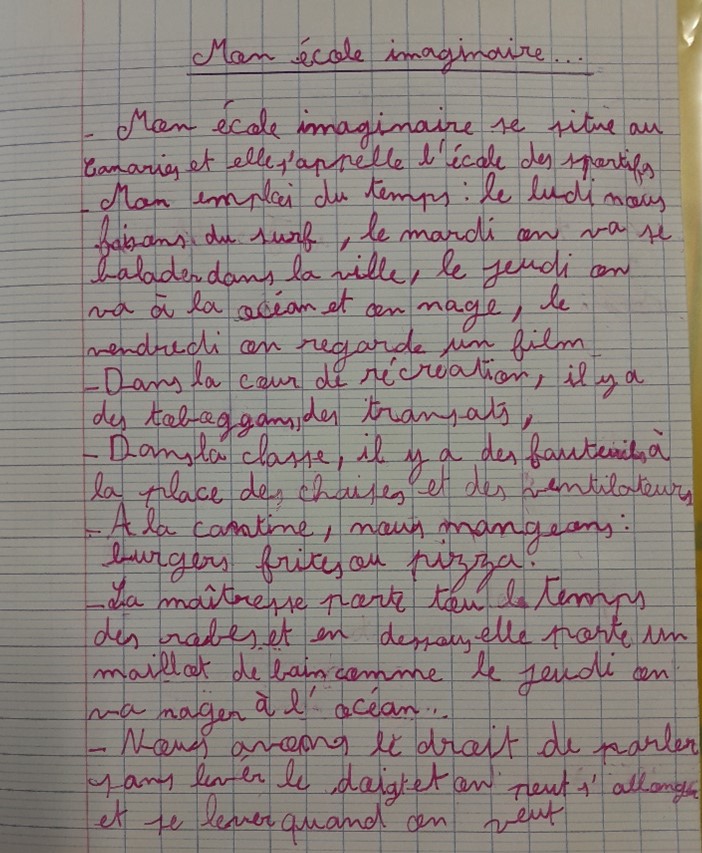 Mon école imaginaire...
- Mon école imaginaire se situe au
Canaries et elle s'appelle l'école des sportifs
- Mon emploi du temps : le ludi nous
faisons du surf, le mardi on va se
balader dans la ville, le jeudi on
va à la océan et on nage, le
vendredi on regarde un film
- Dans la cour de récréation, il y a
des toboggans, des transats,
- Dans la classe, il y a des fauteuils à
la place des chaises et des ventilateurs
- A la cantine, nous mangeons :
burgers frites ou pizza.
- La maîtresse porte tou le temps
des robes et en dessous elle porte un
maillot de bain comme le jeudi on
va nager à l'océan...
- Nous avons le droit de parler
sans lever le doigt et on peut s'allonger
et se lever quand on veut